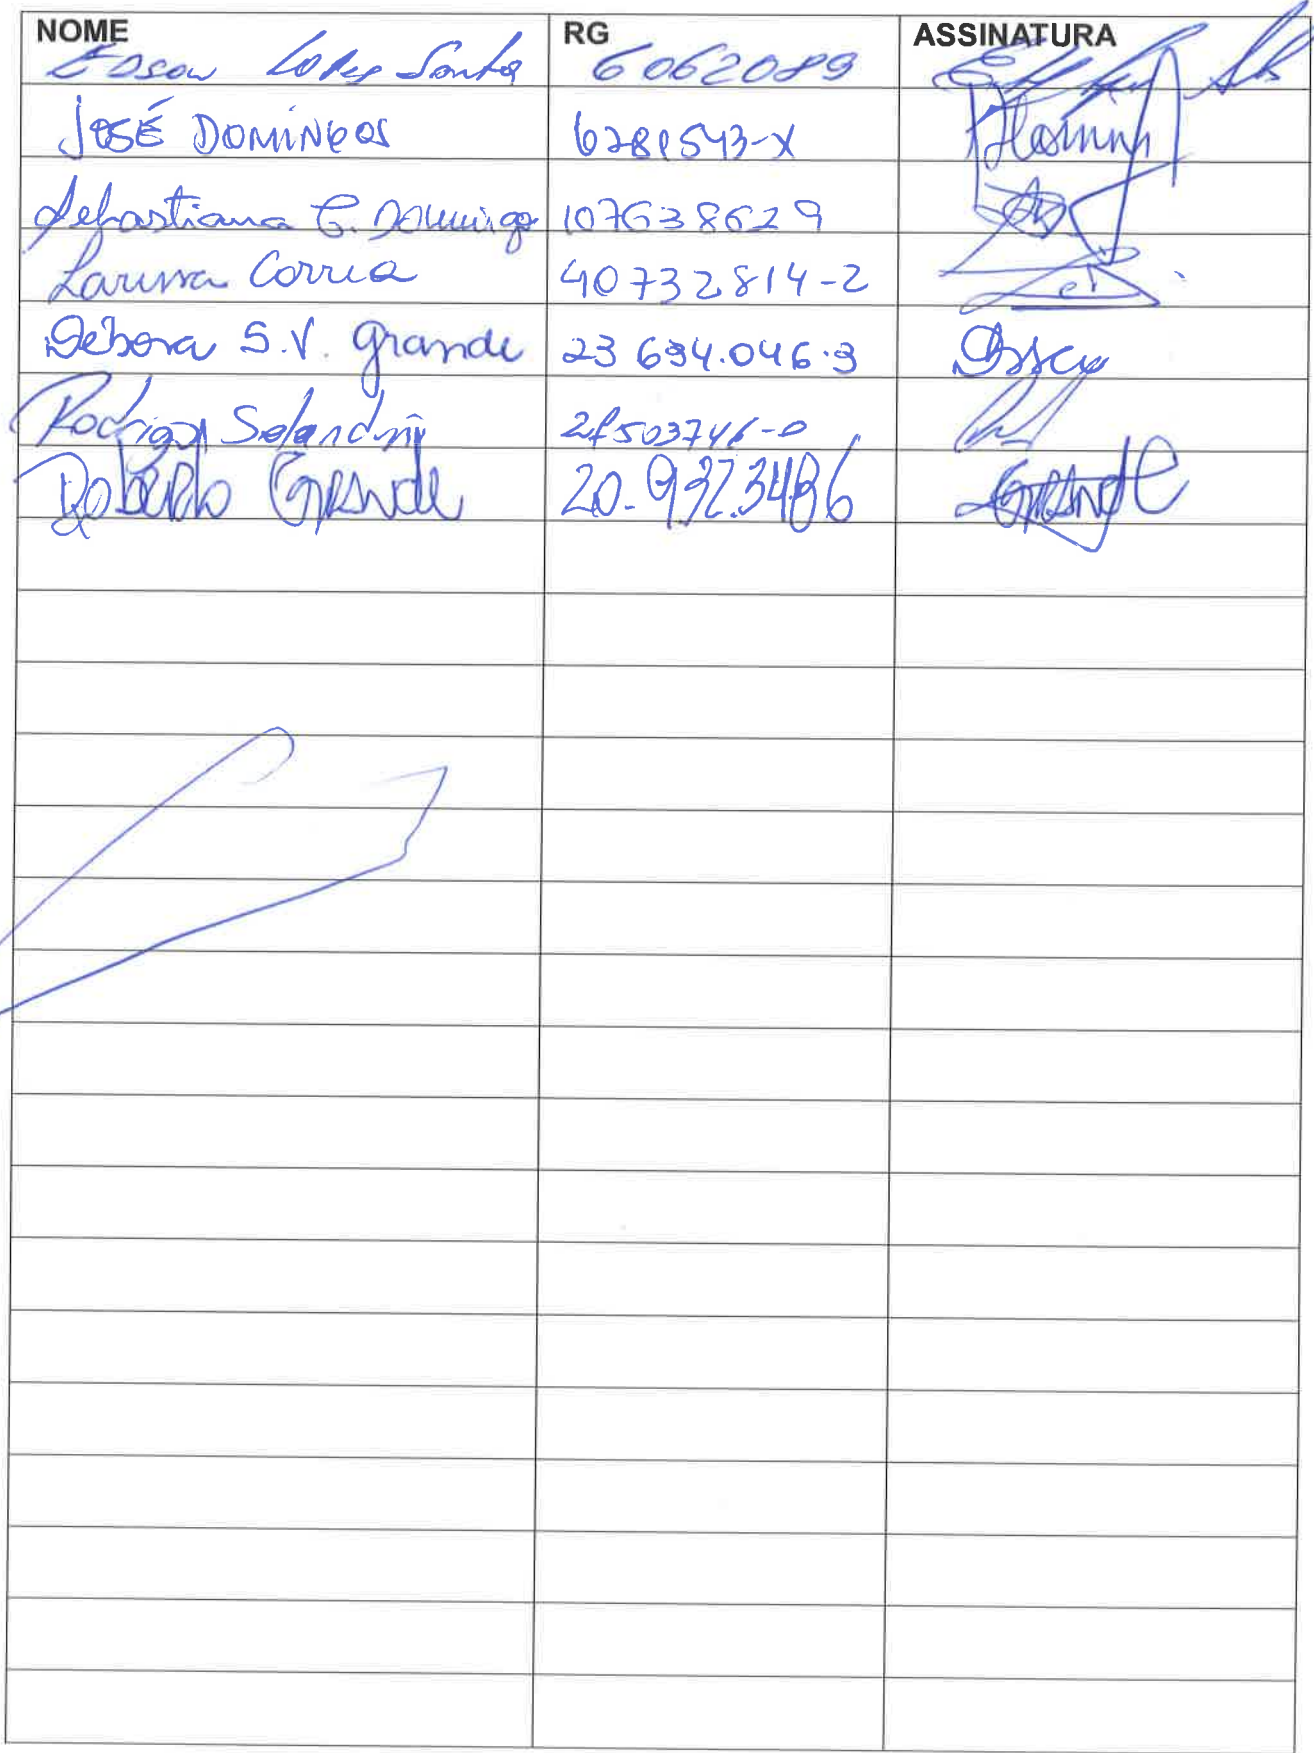 NOME RG ASSINATURA
Edson Lopes Santos 6062089
JOSÉ DOMINGOS 6281543-X
Sebastiana C. Domingo 107638629
Larissa Correa 40732814-2
Débora S.V. Grande 23 634.046.3
Rodrigo
Roberto Grande 20.932.3486 Grande